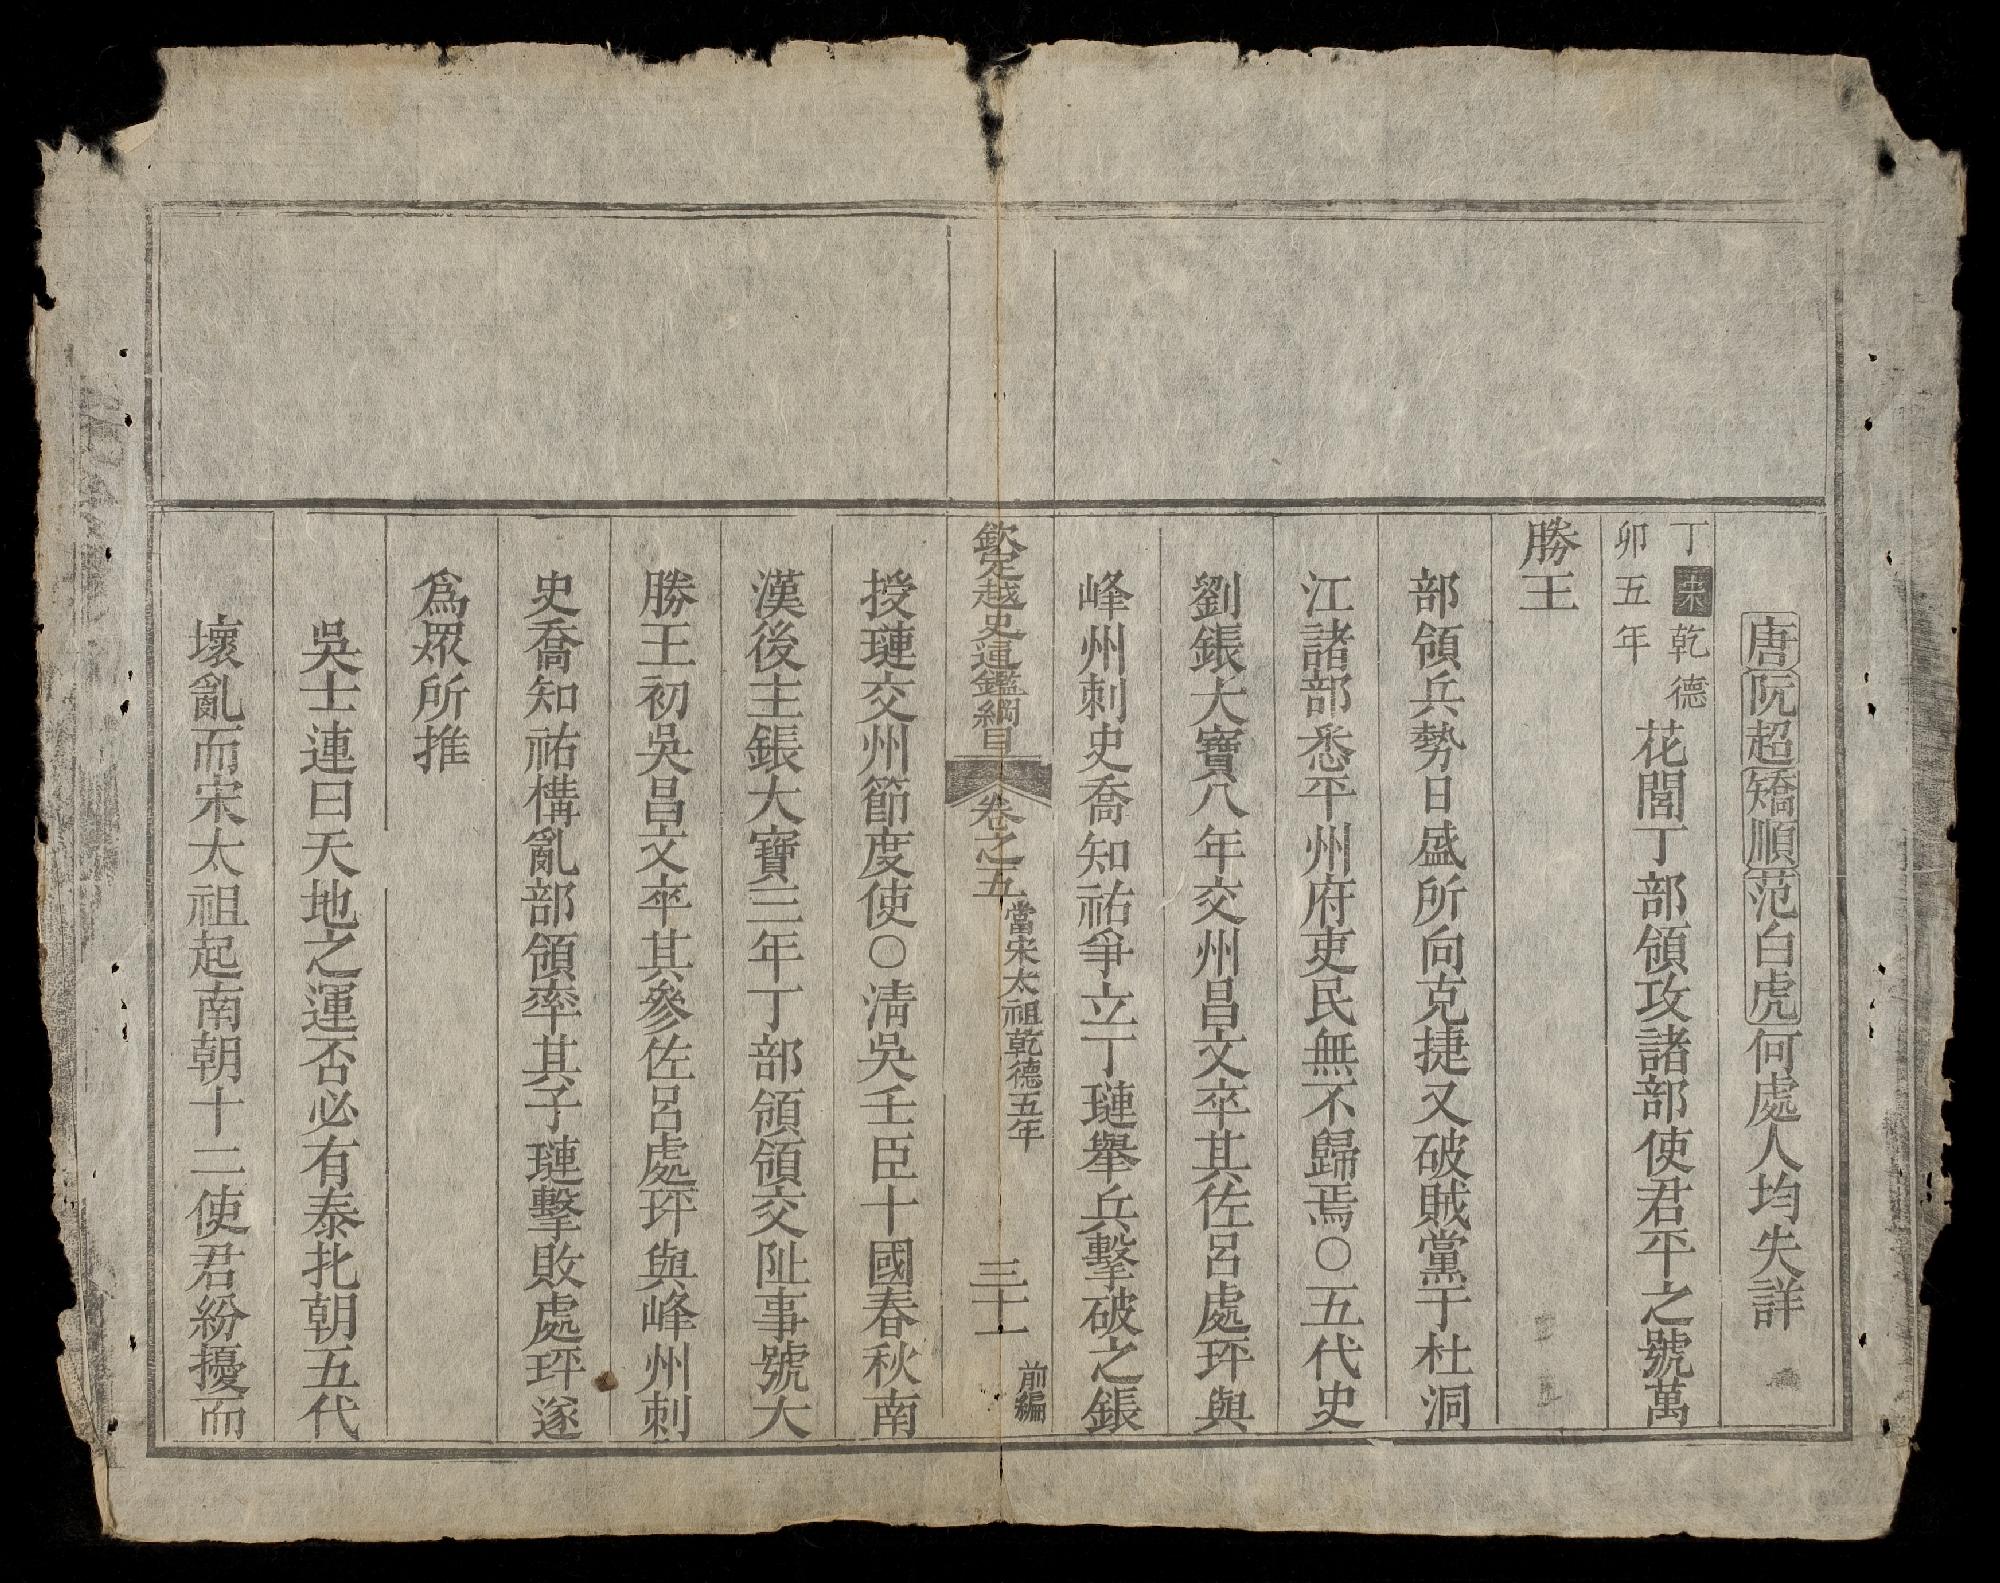 唐阮超矯順范白虎何處人均失詳
丁卯宋乾德五年花閭丁部領攻諸部使君平之號萬
勝王
部領兵勢日盛所向克捷又破賊黨于杜洞
江諸部悉平州府吏民無不歸焉○五代史
劉鋹大寶八年交州昌文卒其佐呂處玶與
峰州刺史喬知祐爭立丁璉舉兵擊破之鋹
欽定越史通鑑綱目 卷之五 當宋太祖乾德五年 三十一 前編
授璉交州節度使○淸吳壬臣十國春秋南
漢後主鋹大寶三年丁部領領交阯事號大
勝王初吳昌文卒其參佐呂處玶與峰州刺
史喬知祐構亂部領率其子璉擊敗處玶遂
爲眾所推
吳士連曰天地之運否必有泰北朝五代
壞亂而宋太祖起南朝十二使君紛擾而